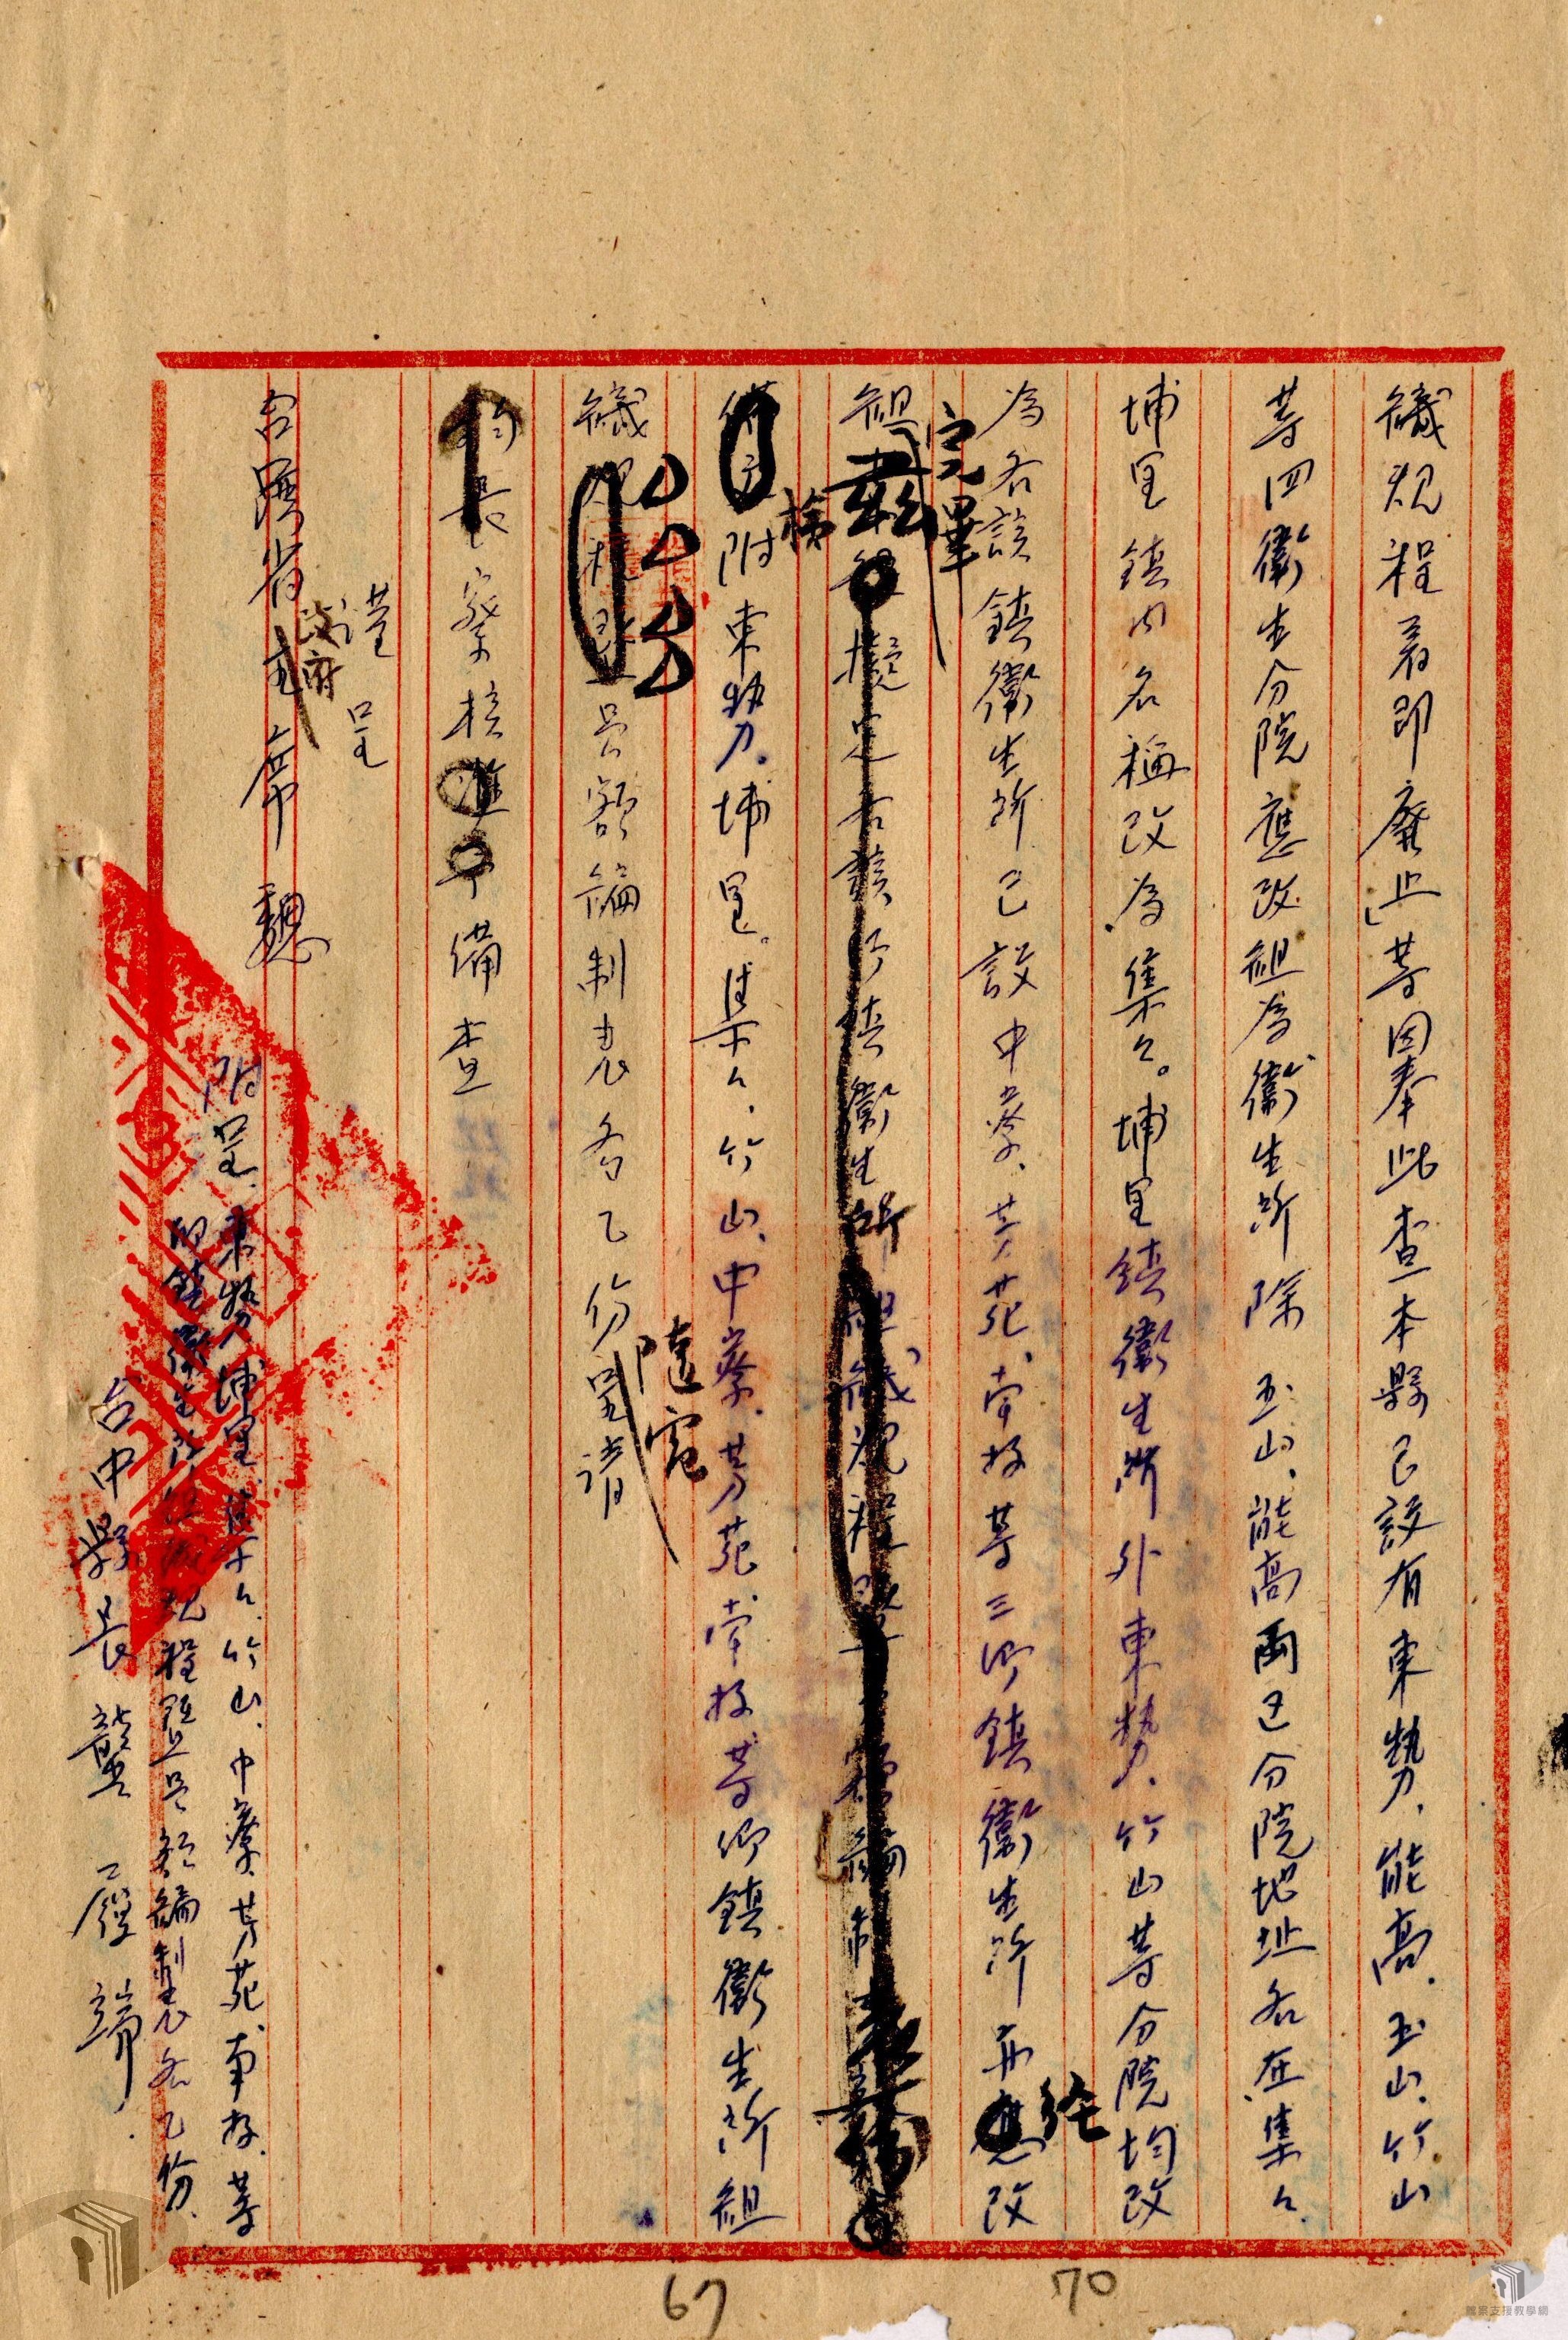 織規程着即廢止」等因奉此查本縣已設有東勢、能高、玉山、竹山
等四衛生分院應改組為衛生所除玉山、能高兩區分院地址各在集々、
埔里鎮內名稱改為集々。埔里鎮衛生所外東勢、竹山等分院均改
為各該鎮衛生所已設中寮、芳苑、草屯等三鄉鎮衛生所亦經改
組完畢
茲擬定各該鄉鎮衛生所組織規程暨員額編制表
檢附東勢。埔里。集々、竹山、中寮、芳苑等鄉鎮衛生所組
織規程暨員額編制表各乙份隨電呈請
鈞長察核准予備查
謹呈
台灣省政府主席魏
附呈、東勢、埔里、集々、竹山、中寮、芳苑等
鄉鎮衛生所組織規程暨員額編制表各乙份、
台中縣長龔履端
67
70
檔案支援教學網